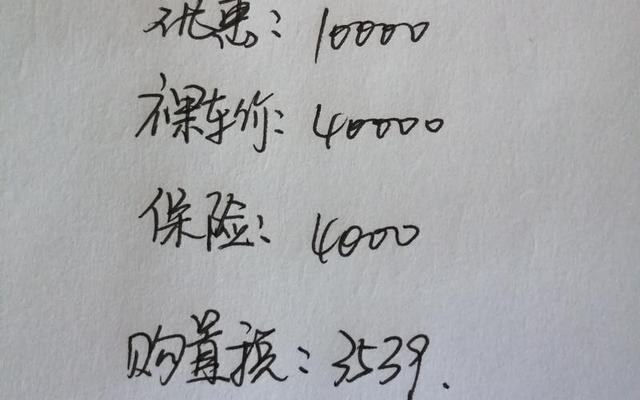 优惠：10000
裸车价：40000
保险：4000
购置税：3539.